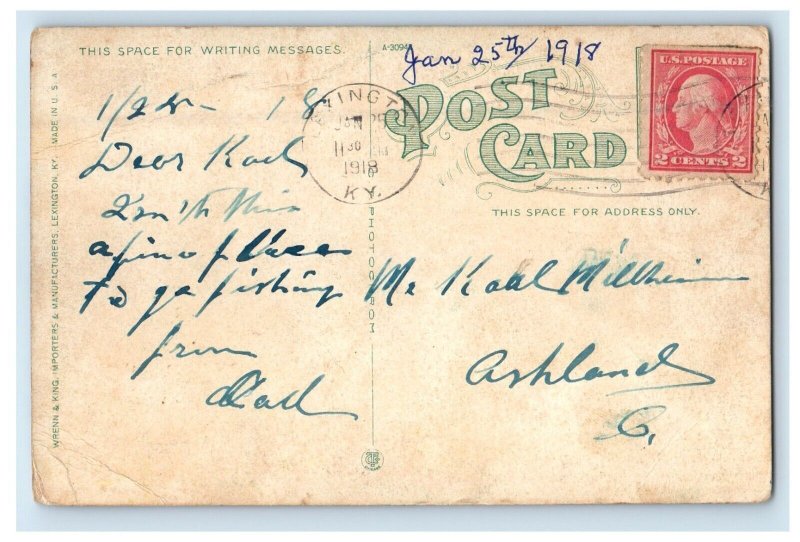 THIS SPACE FOR WRITING MESSAGES.
A-3094
Jan 25th/1918
U.S. POSTAGE
2 CENTS 2
POST CARD
THIS SPACE FOR ADDRESS ONLY.
JAN
11 30
1918
KY.
Dear
Isn't this
a fine place
to go fishing
from
Dad
Mr
Ashland
WRENN & KING, IMPORTERS & MANUFACTURERS, LEXINGTON, KY. MADE IN U.S.A.